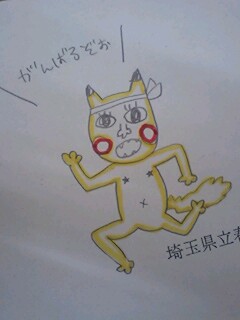 がんばるぞお
埼玉県立